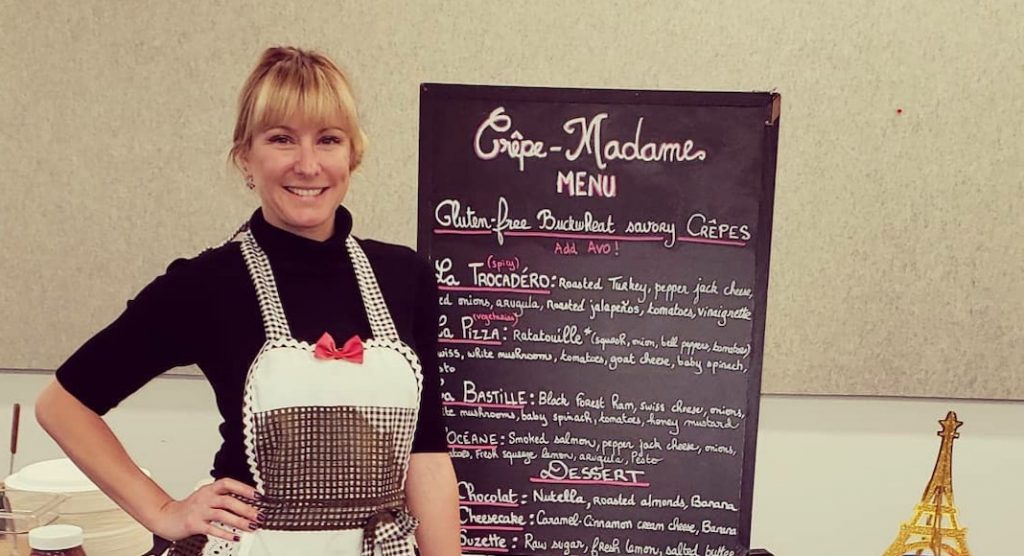 Crêpe-Madame
MENU
Gluten-free Buckwheat savory CRÊPES
Add Avo!
(spicy)
La TROCADÉRO: Roasted Turkey, pepper jack cheese,
red onions, arugula, roasted jalapeños, tomatoes, vinaigrette
(vegetarian)
La PIZZA: Ratatouille* (squash, onion, bell peppers, tomatoes)
swiss, white mushrooms, tomatoes, goat cheese, baby spinach,
esto
La BASTILLE: Black Forest Ham, swiss cheese, onions,
ite mushrooms, baby spinach, tomatoes, honey mustard
L'OCÉANE: Smoked salmon, pepper jack cheese, onions,
atoes, Fresh squeege lemon, arugula, Pesto
DESSERT
Chocolat: Nutella, roasted almonds, Banana
Cheesecake: Caramel-Cinnamon cream cheese, Banana
Suzette: Raw sugar, fresh lemon, salted butter